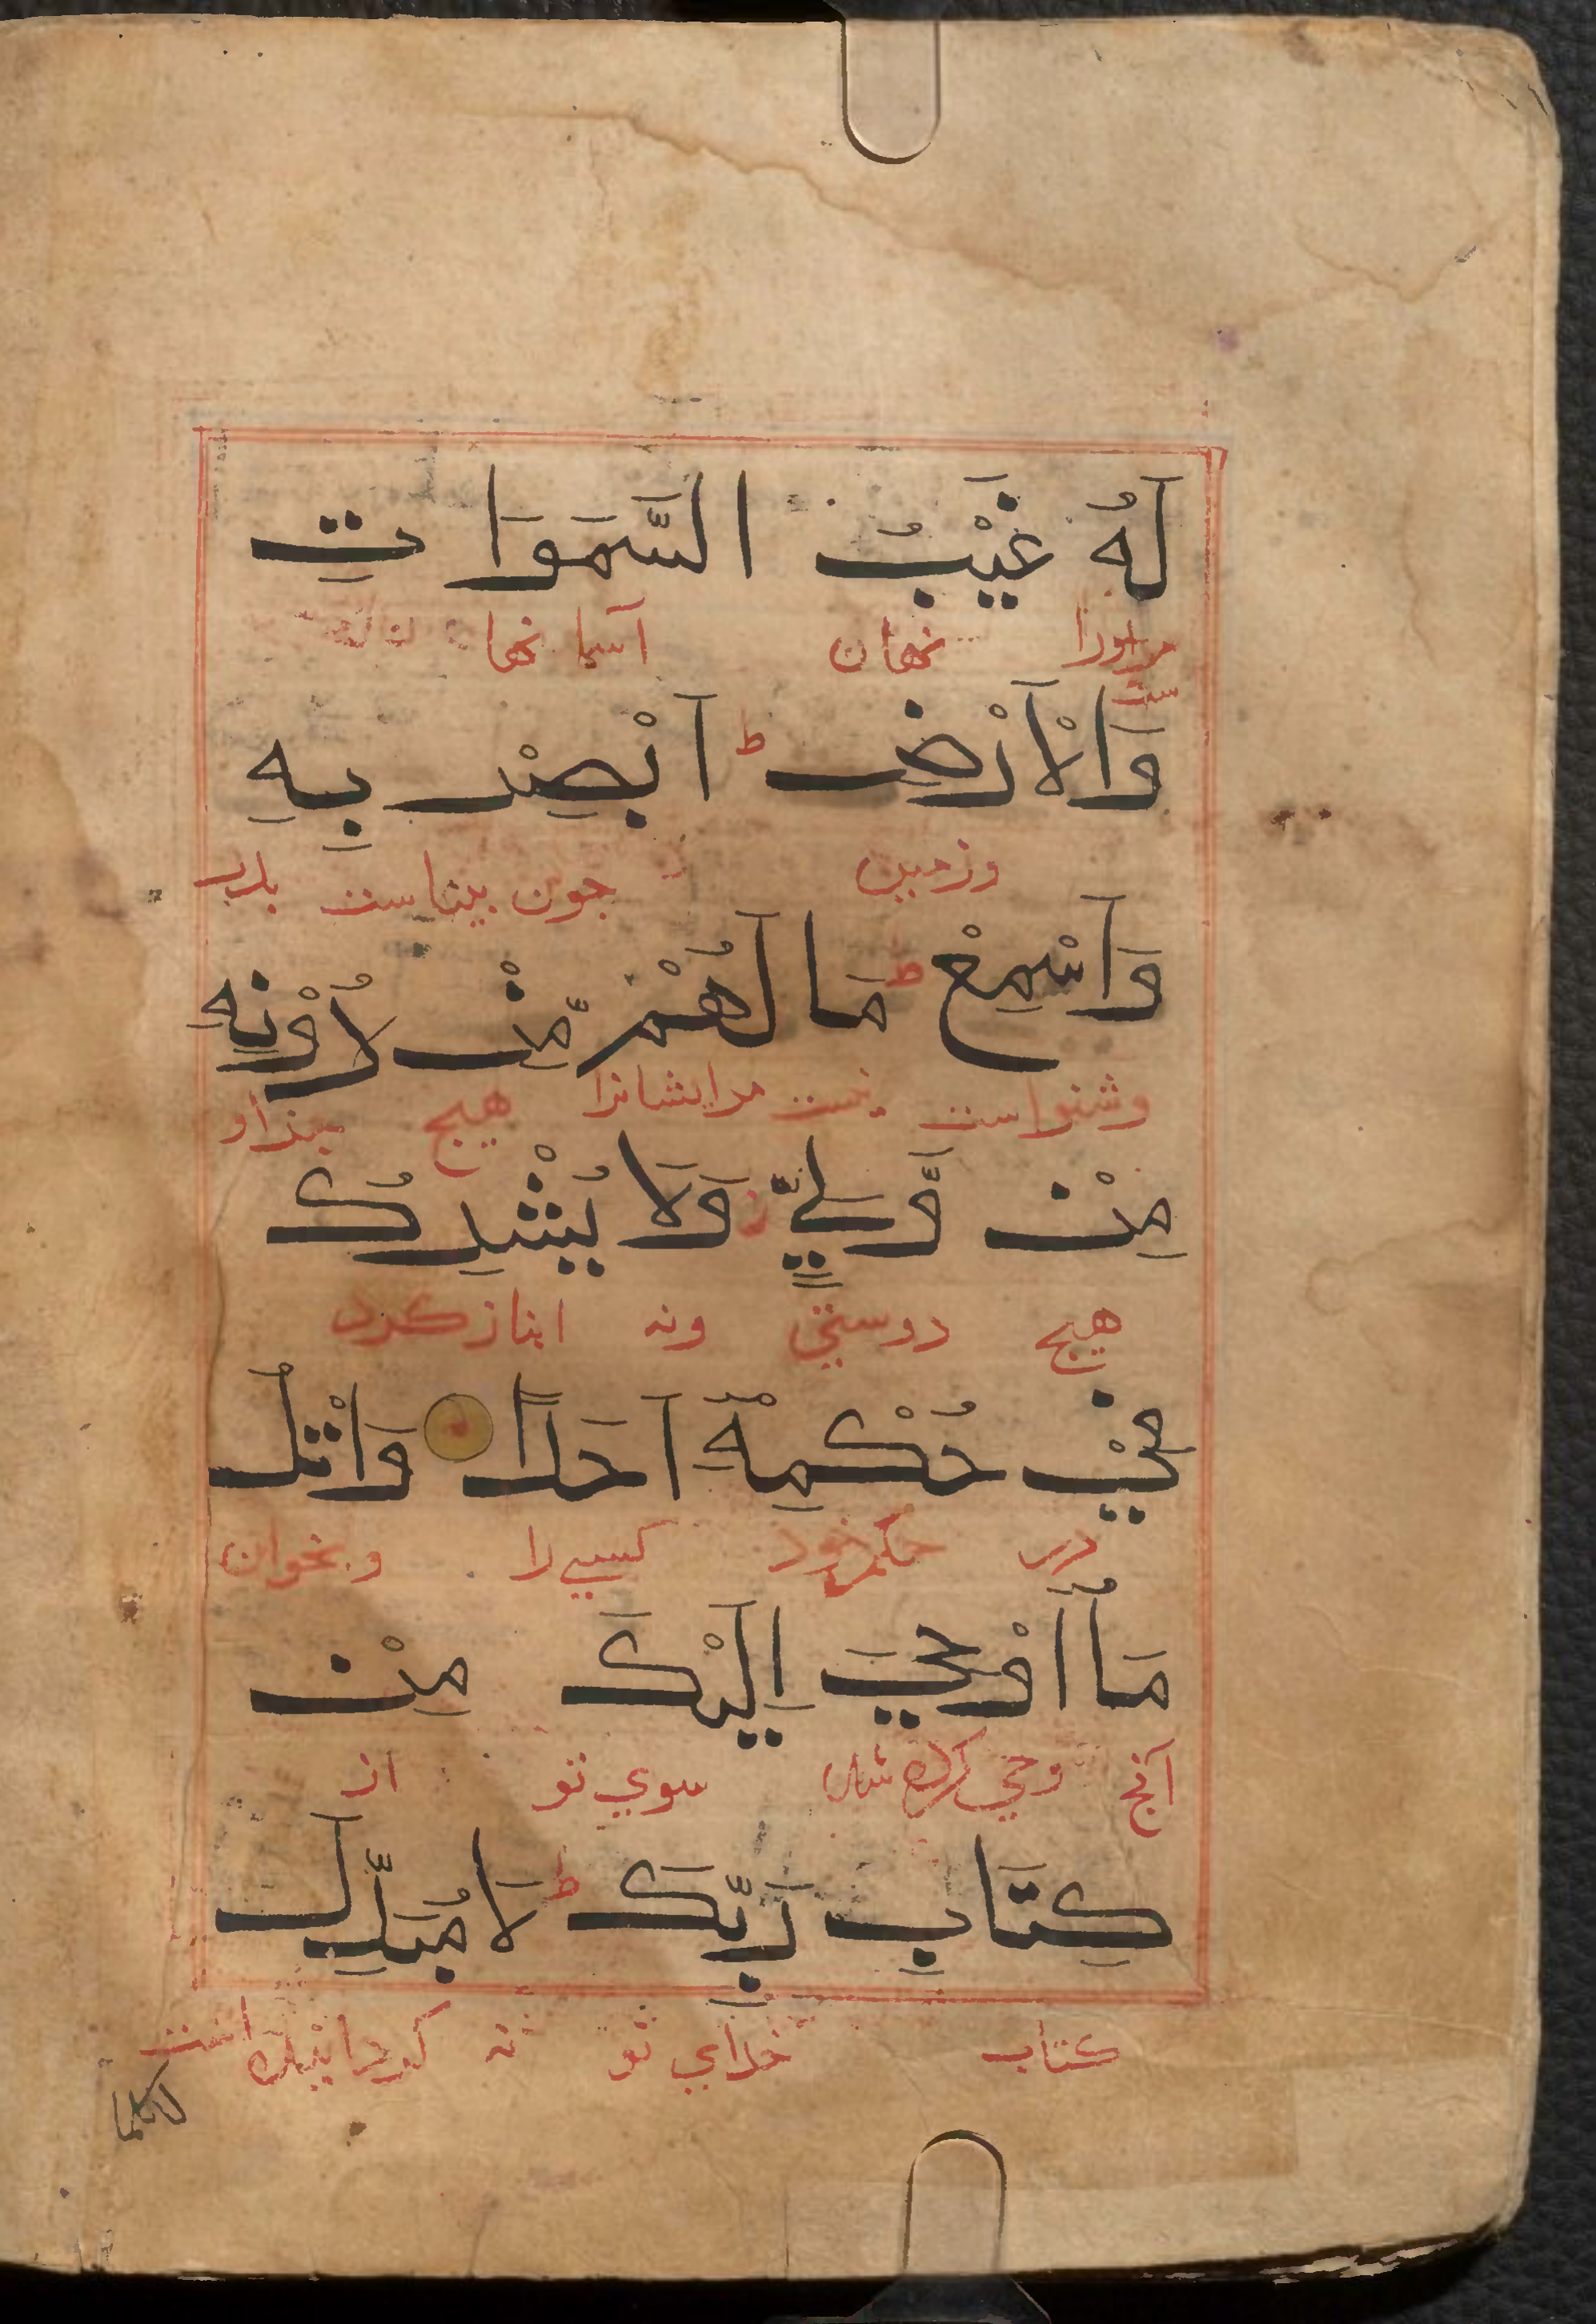 لَهُ غَيْبُ السَّمَوَاتِ
مراورا نهان آسمانها
ست
وَالْاَرْضِ ط اَبْصِرْ بِهِ
وزمين جون بيناست بدر
وَاَسْمِعْ ط مَا لَهُمْ مِّنْ دُوْنِهِ
وشنواست نيست مرايشانرا هيج جزاو
مِنْ وَّلِيٍّ ز وَلَا يُشْرِكُ
هيج دوستي ونه انبازكرد
فِيْ حُكْمِهٖٓ اَحَدًا وَاتْلُ
در حكم خود كسي را وبخوان
مَا اُوْحِيَ اِلَيْكَ مِنْ
آنج وحي كرده شد سوي تو از
كِتَابِ رَبِّكَ ط لَا مُبَدِّلَ
كتاب خداي تو نه كردانيده است
لكلما